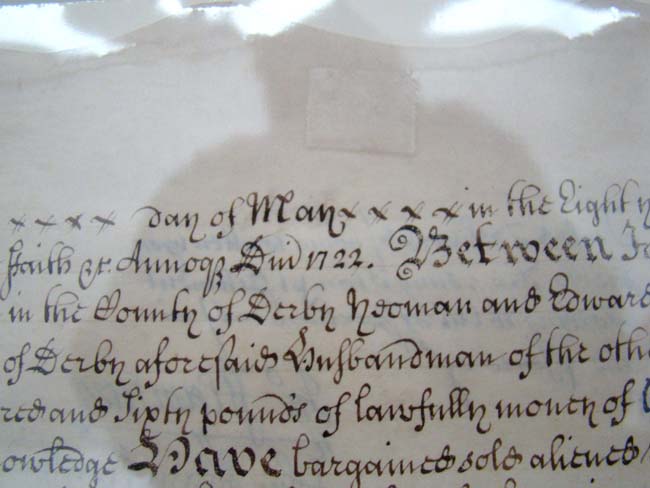 x x x x day of May x x x x in the Eight y
ffaith &c. Annoq Dni 1722. Between
in the County of Derby Yeoman and Edward
of Derby aforesaid Husbandman of the othe
red and Sixty pounds of lawfull money of
owledge Have bargained sold aliened